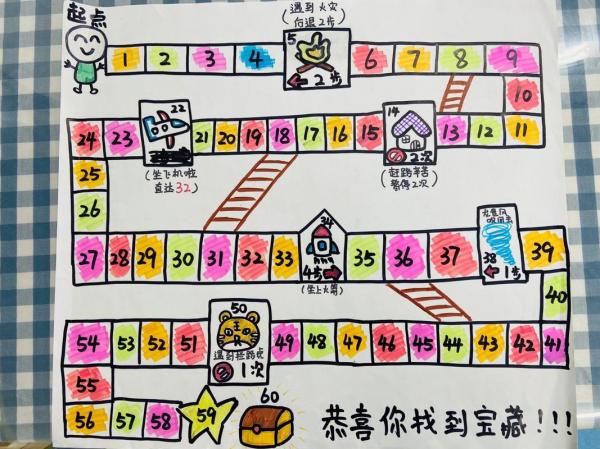 起点
(遇到火灾
后退2步)
1 2 3 4 5 6 7 8 9
2步
10
24 23 22 21 20 19 18 17 16 15 14 13 12 11
2次
(坐飞机啦
直达32)
(赶路辛苦
暂停2次)
25
26
龙卷风
27 28 29 30 31 32 33 34 35 36 37 38 39
4步
1步
(坐上火箭)
40
54 53 52 51 50 49 48 47 46 45 44 43 42 41
遇到拦路虎
1次
55
56 57 58 59 60
恭喜你找到宝藏!!!